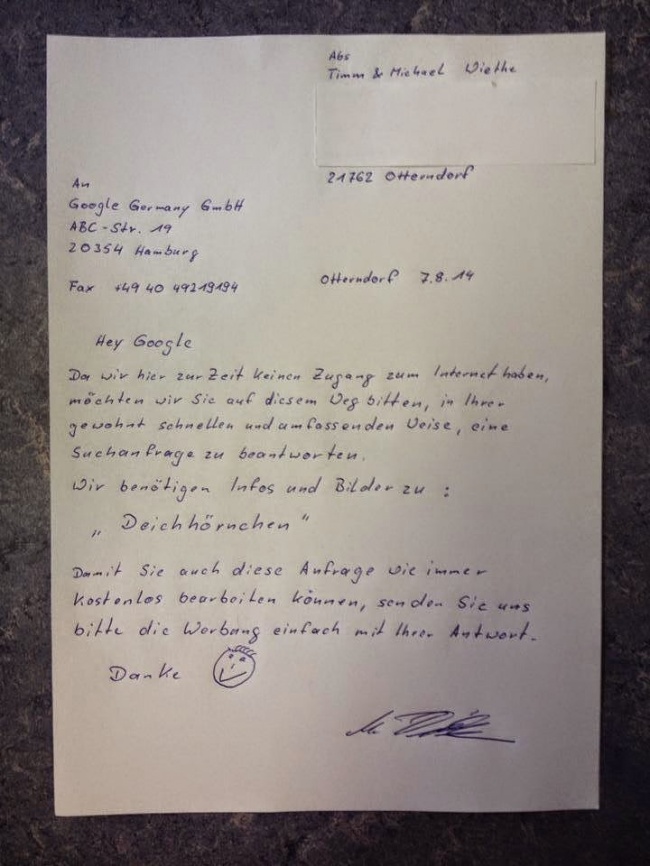 Abs
Timm & Michael Wiethe
21762 Otterndorf
An
Google Germany GmbH
ABC-Str. 19
20354 Hamburg
Fax +49 40 49219194
Otterndorf 7.8.14
Hey Google
Da wir hier zur Zeit keinen Zugang zum Internet haben,
möchten wir Sie auf diesem Weg bitten, in Ihrer
gewohnt schnellen und umfassenden Weise, eine
Suchanfrage zu beantworten.
Wir benötigen Infos und Bilder zu :
„ Deichhörnchen "
Damit Sie auch diese Anfrage wie immer
Kostenlos bearbeiten können, senden Sie uns
bitte die Werbung einfach mit Ihrer Antwort.
Danke